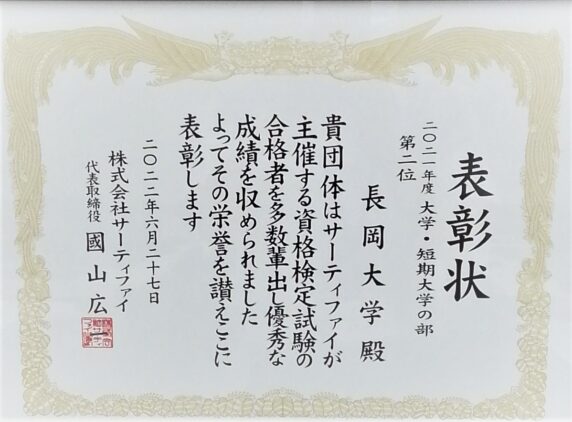 表彰状
二〇二一年度 大学・短期大学の部
第二位
長岡大学殿
貴団体はサーティファイが
主催する資格検定試験の
合格者を多数輩出し優秀な
成績を収められました
よってその栄誉を讃えここに
表彰します
二〇二二年六月二十七日
株式会社サーティファイ
代表取締役 國山広一